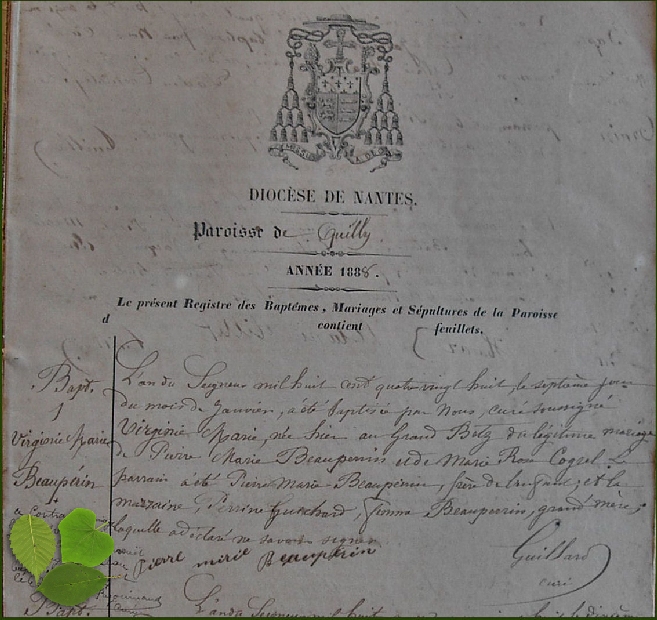 DIOCÈSE DE NANTES.
Paroisse de Quilly
ANNÉE 1888.
Le présent Registre des Baptêmes, Mariages et Sépultures de la Paroisse
d contient feuillets.
Bapt.
1
Virginie Marie
Beaupérin
L'an du Seigneur mil huit cent quatre vingt huit, le septième jour
du mois de Janvier, a été baptisée par Nous, curé soussigné
Virginie Marie, née hier au Grand Betz du légitime mariage
de Pierre Marie Beauperrin et de Marie Rose Cogrel. Le
parrain a été Pierre Marie Beauperrin, père de l'enfant, et la
marraine, Perrine Guischard, femme Beauperrin, grand'mère,
laquelle a déclaré ne savoir signer
pierre marie Beaupérin
Guillard
curé
a Contra
Bapt.
L'an du Seigneur mil huit